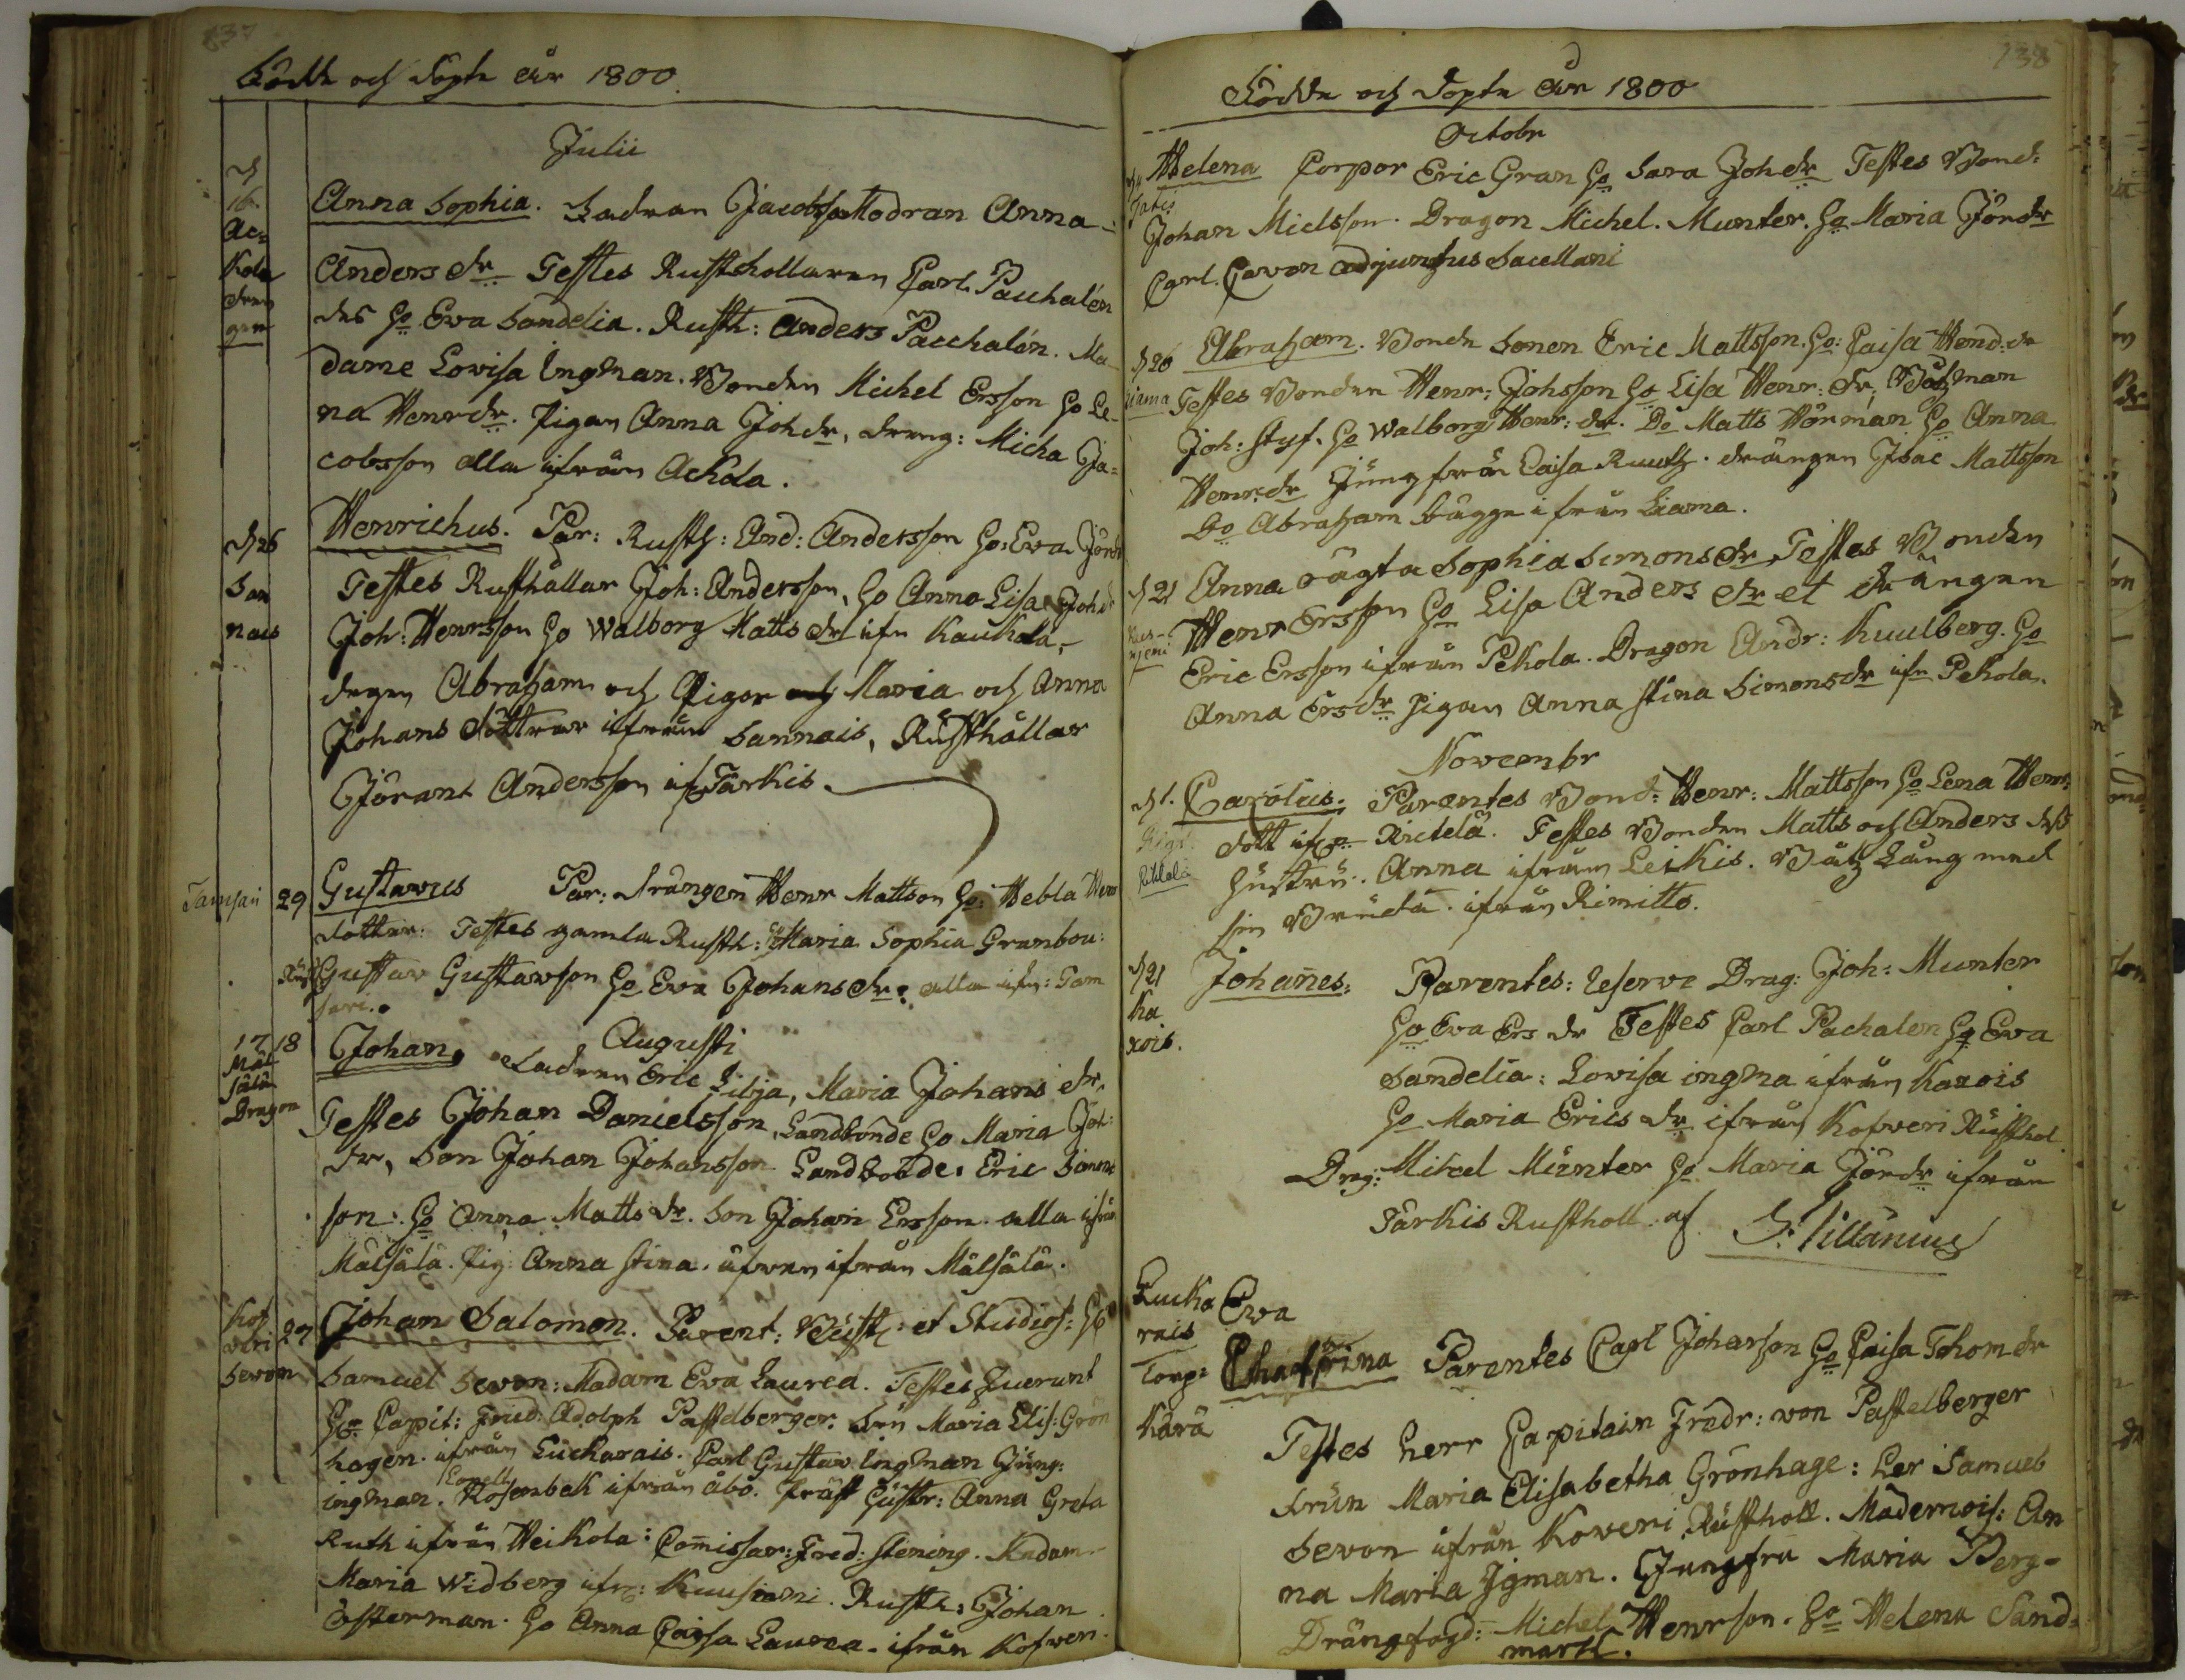 237
Födde och döpte år 1800.
Julii
d
16.
Ac=
kola
dren
gen
Anna Sophia. Fadran Jacobsson Modran Anna
Anders dr Testes Rusthollaren Carl Pacchalén
des Ho Eva Sandelia. Rusth: Anders Pacchalén. Ma-
dame Lovisa Engman. Bonden Michel Ersson Ho Le-
na Henrdr. Pigan Anna Johdr, dreng: Micha Ja=
cobsson alla ifrån Ackola.
d 26
San
nais
Henrichus. Par: Rusth: And: Andersson Ho: Eva Jördr
Testes Rusthållar Joh: Andersson, Ho Anna Lisa Johdr
Joh: Henrsson Ho Walborg Matts dr ifn Kaukola,
dregen Abraham och Pigor Maria och Anna
Johans döttrar ifrån Sannais, Rusthållar
Jörant Andersson if Tarkis.
Tamsari 29
Gustavus Par: drängen Henr Mattson Ho: Hebla Henr
dotter. Testes gamla Rusth: Maria Sophia Granbou:
Rust Gustav Gustavson Ho Eva Johans dr. alla ifr: Tam
sari.
Augusti
17 18
Mäl
sälä
Dragon
Johan, Fadren Eric Lilja, Maria Johans dr.
Testes Johan Danielsson, Landbonde Ho Maria Joh:
dr, Son Johan Johansson Landbonde. Eric Simons
son: Ho Anna Matts dr. Son Johan Ersson. alla ifrån
Mälsälä. Pig: Anna Stina. äfven ifrån Mälsälä.
Kof
veri 27
Sevon
Johan Salomon. Parent: Rusth: et Studios: Ho
Samuel Sevon: Madam Eva Laurea. Testes fuerunt
Hr Capit: Fried: Adolph Pastelberger. Frun Maria Elis: Grön
hagen. ifrån Luckarais. Carl Gustav Engman Jung:
ingman. Rosenbek ifrån åbo. Prost Hustr: Anna Greta
Ruth ifrån Weikola: Comissar: Fred: Stening. Madam
Maria Widberg ifr: Kuusieni. Rusth: Johan
Österman. Ho Anna Caisa Laurea. ifrån Kofveri.
238
Födde och döpte år 1800
Octobr
Helena Corpor Eric Gran Ho Sara Johdr Testes Bond:
Johan Mickelsson. Dragon Michel. Munter. Ho Maria Jördr
Carl. Cavon adjunctus Sacellani
d 20
Liama
Abraham. Bonde Sonen Eric Mattsson. Ho: Caisa Hend:dr
Testes Bonden Henr: Johsson Ho Lisa Henr: dr, Båtzman
Joh: Styf. Ho Walborg Henr: dr. Do Matts Hörman Ho Anna
Henr:dr Jungfrun Caisa Ruuth. drängen Isac Mattsson
Do Abraham bägge ifrån Liama.
d 21
Anna oägta Sophia Simons dr Testes Bonden
Henr Ersson Ho Lisa Anders dr et drängen
Eric Ersson ifrån Pekola. Dragon Andr: Kuulberg. Ho
Anna Ersdr Pigan Anna Stina Simonsdr ifn Pekola.
Novembr
d 1.
Carolus. Parentes Bond: Henr: Mattsson Ho Lena Henr:
dott ifn Rictelä. Testes Bonden Matts och Anders dess
hustru. Anna ifrån Leikis. Båtz Lång med
sin Bruda. ifrån Rimitto.
d 21
Ka
rois.
Johañes. Parentes: reserve Drag: Joh: Munter
Ho Eva Ers dr Testes Carl Pachalen Ho Eva
Sandelia: Lovisa ingma ifrån Karois
Ho Maria Erics dr ifrån Kofveri Rusthol
Drag: Mikel Münter Ho Maria Jördr ifrån
Särkis Rustholl. af
Lucka
rais
Torp:
Kärä
Eva
Chatrina Parentes Carl Johanson Ho Caisa Thomdr
Testes herr Capitain Fredr: von Pastelberger
Frun Maria Elisabetha Grönhage: Her Samuel
Sevon ifrån Koveri Rustholl. Madernois: An
na Maria Igman. Jungfru Maria Berg-
Drängfogd: Michel Henrson. Ho Helena Sand=
mark.